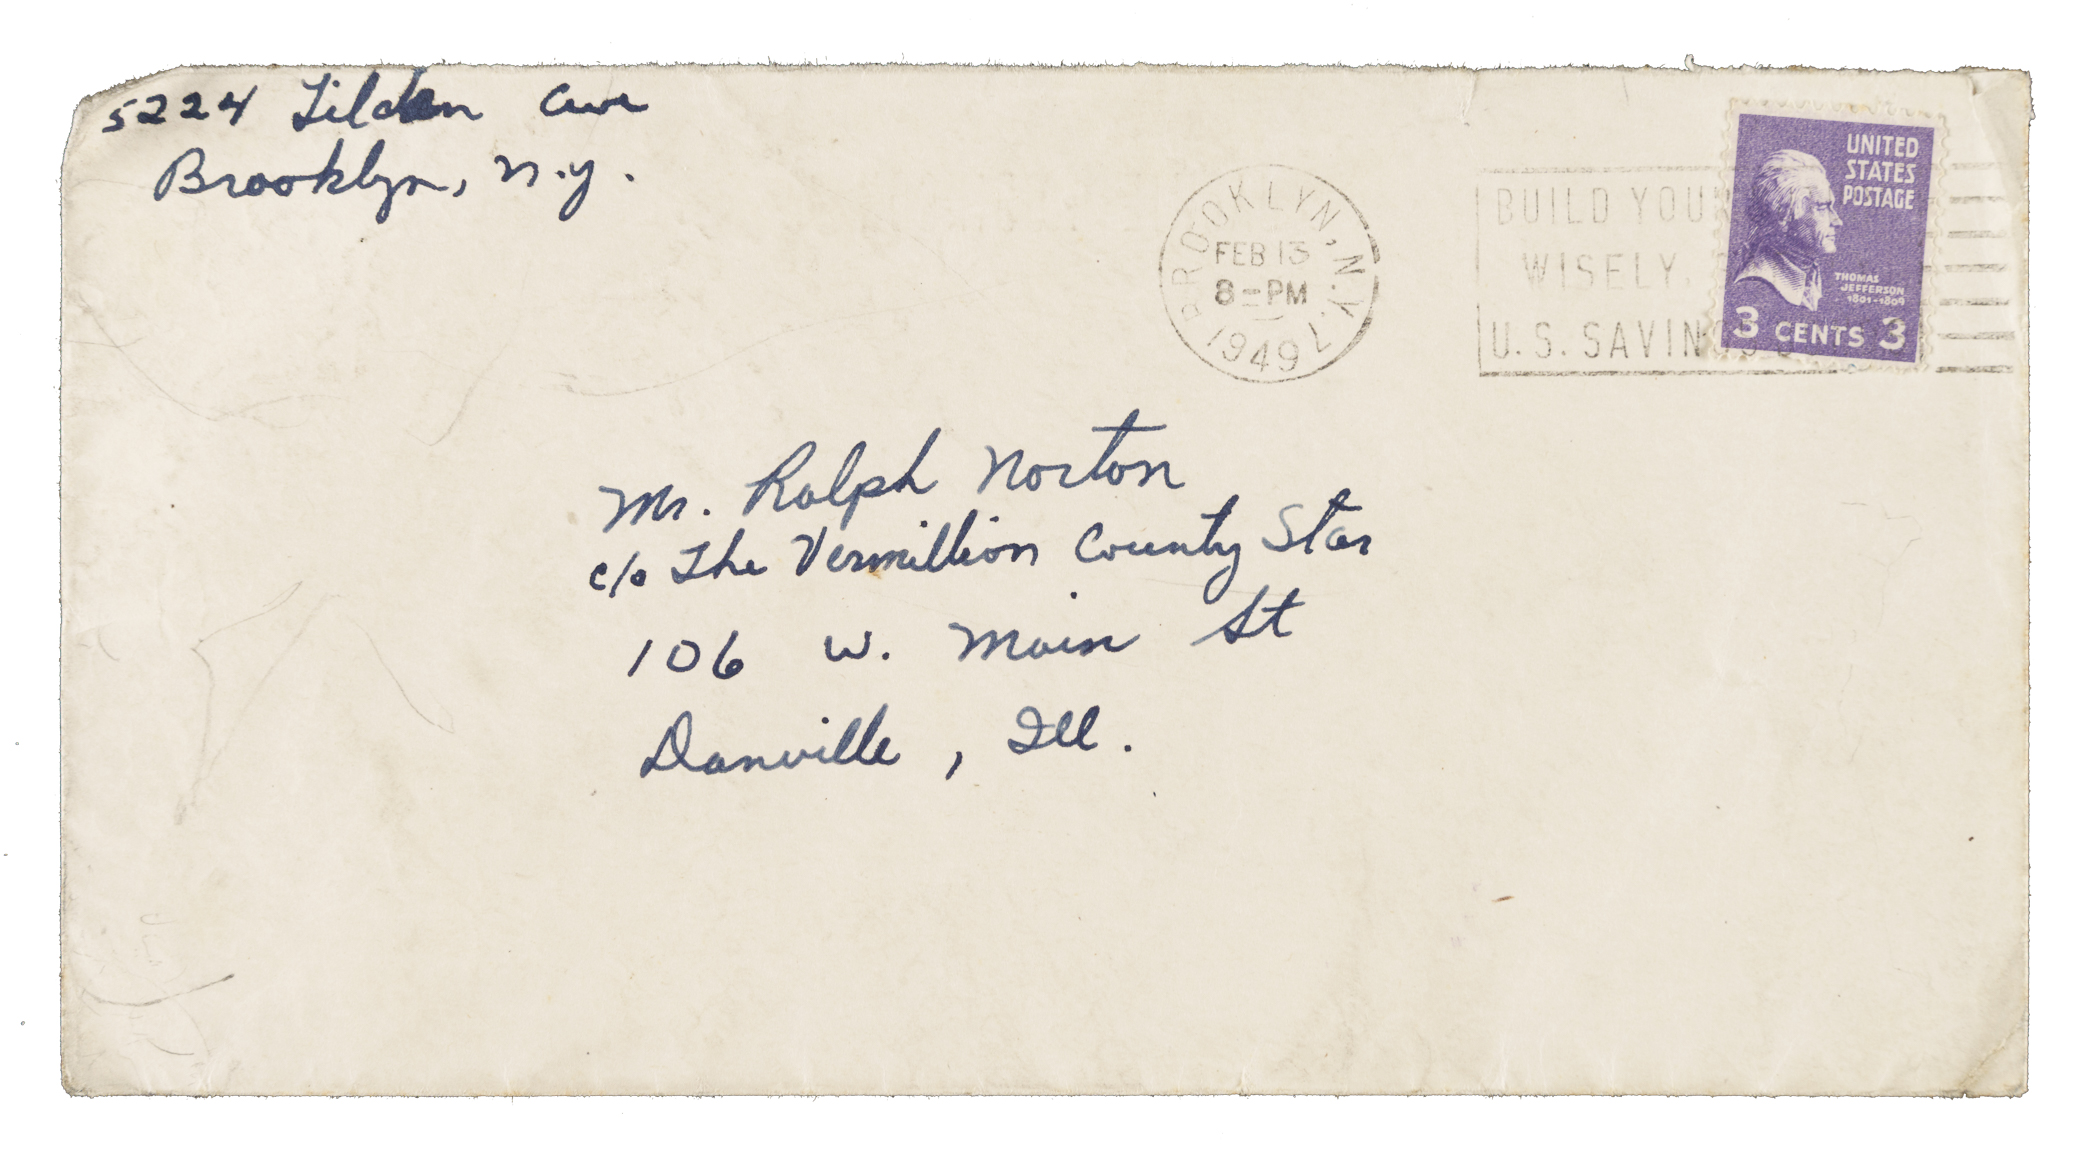 5224 Tilden Ave
Brooklyn, N.Y.
BROOKLYN, N.Y.
FEB 13
8-PM
1949
BUILD YOU
WISELY.
U.S. SAVIN
UNITED
STATES
POSTAGE
THOMAS
JEFFERSON
1801-1809
3 CENTS 3
Mr. Ralph Norton
c/o The Vermillion County Star
106 W. Main St
Danville, Ill.